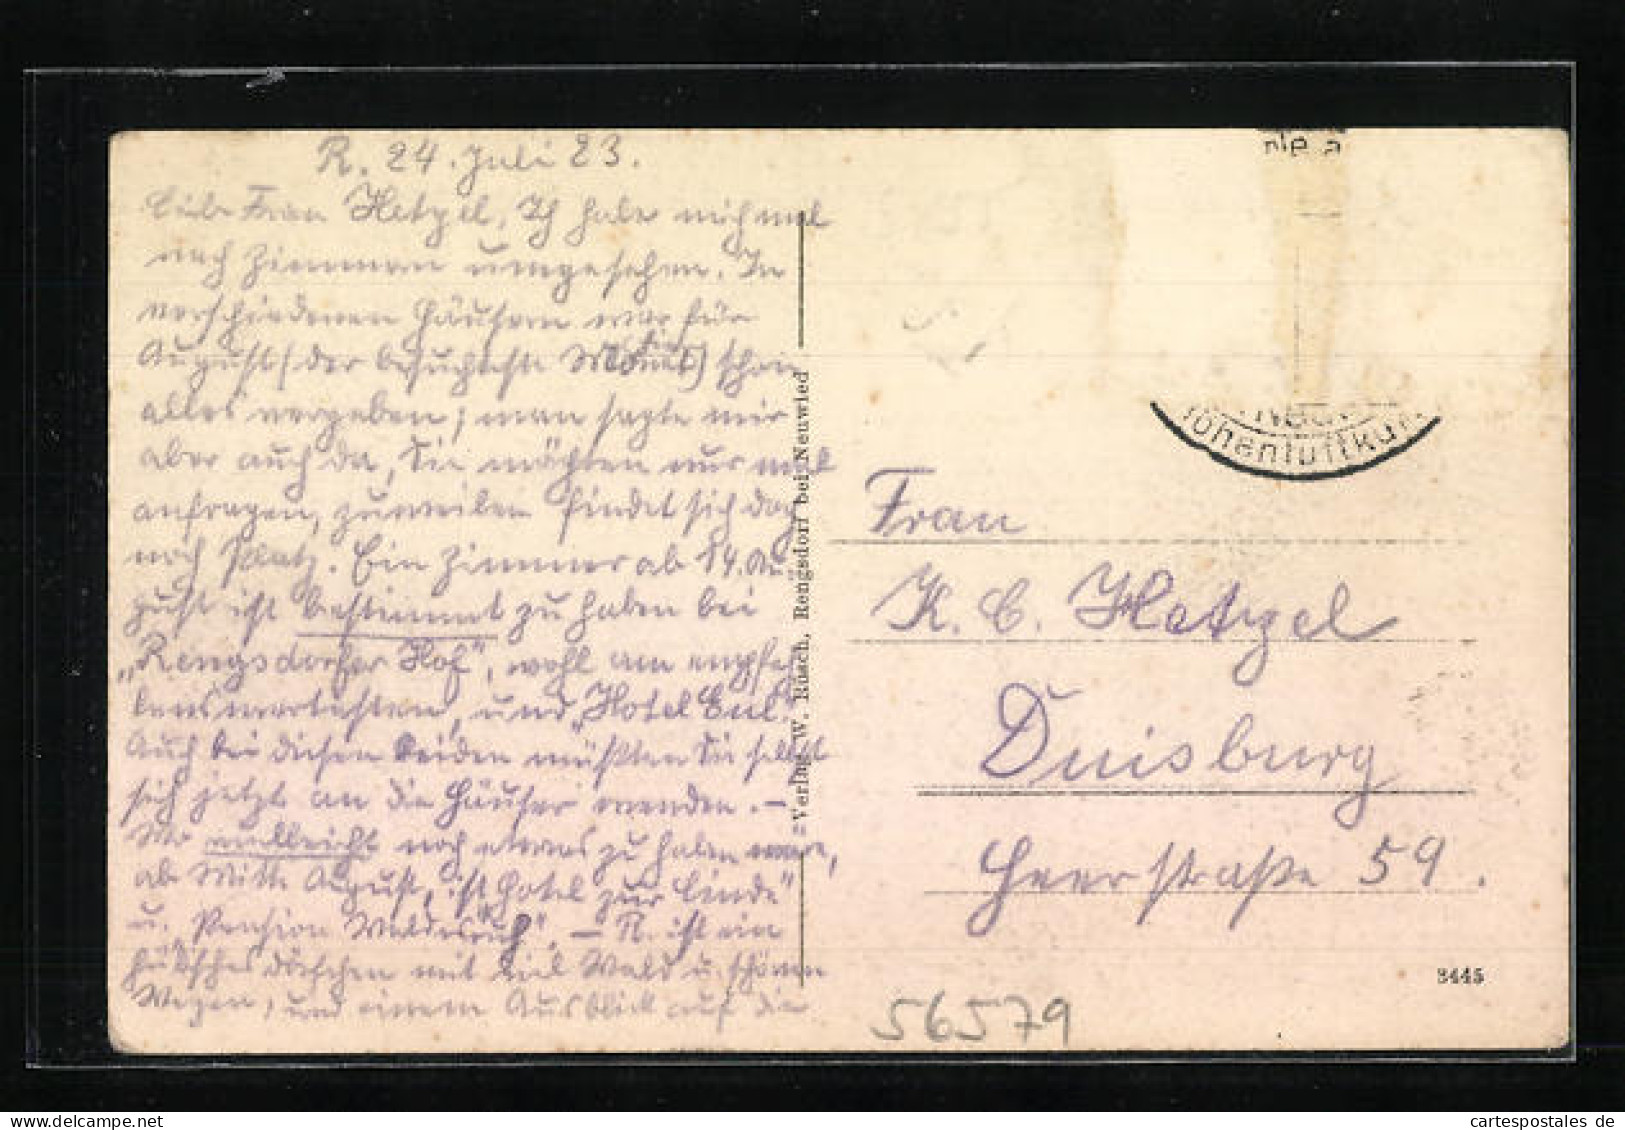 R. 24. Juli 23.
Liebe Frau Hetzel, Ich habe mich mal
nach Zimmern umgesehen. In
verschiedenen Häusern war für
August (der besuchteste Monat) schon
alles vergeben; man sagte mir
aber auch da, Sie möchten nur mal
anfragen, zuweilen findet sich doch
noch Platz. Ein Zimmer ab 14. Au-
gust ist bestimmt zu haben bei
„Rengsdorfer Hof", wohl am empfeh-
lenswertesten, und „Hotel Eul".
Auch bei diesen beiden müßten Sie selbst
sich jetzt an die Häuser wenden. —
Wo vielleicht noch etwas zu haben wäre,
ab Mitte August, ist Hotel zur Linde"
u. Pension Waldesruh". — R. ist ein
hübsches Dörfchen mit viel Wald u. schönen
Wegen, und einem Ausblick auf die
Verlag W. Rüsch, Rengsdorf bei Neuwied
Höhenluftkur
Frau
K. E. Hetzel
Duisburg
Heerstraße 59.
3445
56579
cartespostales de